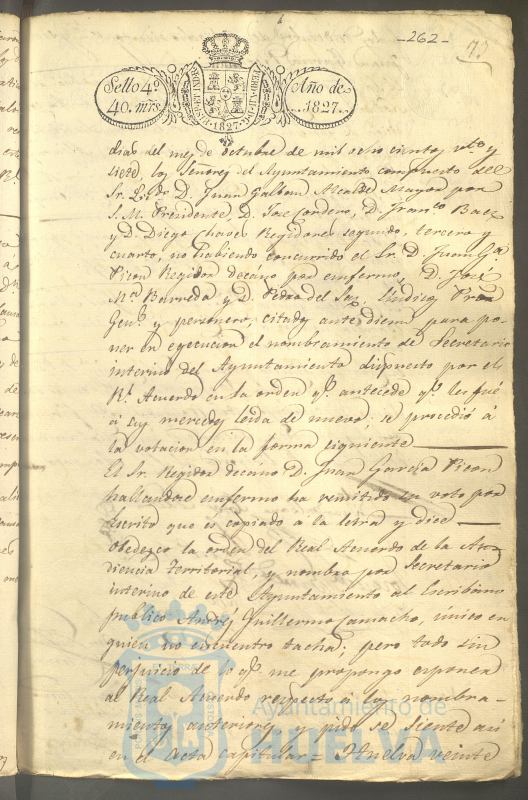 -262-
Sello 4º
40. mrs.
Año de
1827.
dias del mes de octubre de mil ochocientos vte y
siete, los Señores del Ayuntamiento compuesto del
Sr. D. Juan Galban Alcalde Mayor por
S. M. Presidente, D. Jose Cordero, D. Franco Baez
y D. Diego Chaves Regidores segundo, tercero y
cuarto, no habiendo concurrido el Sr. D. Juan Ga
Picon Regidor decano por enfermo, D. José
Ma Barreda y D. Pedro del Saz, Sindicos Pror
Genl y personero, citados ante diem para po-
ner en egecucion el nombramiento de Secretario
interino del Ayuntamiento dispuesto por el
Rl Acuerdo en la orden qe antecede qe les fué
á sus mercedes leida de nuevo, se procedió á
la votacion en la forma siguiente
El Sr. Regidor decano D. Juan Garcia Picon
hallandose enfermo ha remitido su voto por
escrito que es copiado a la letra y dice
Obedezco la orden del Real Acuerdo de la Au-
diencia territorial, y nombro por Secretario
interino de este Ayuntamiento al Escribano
publico Andres Guillermo Camacho, unico en
quien no encuentro tacha; pero todo sin
perjuicio de lo qe me propongo exponer
al Real Acuerdo respecto a los nombra-
mientos anteriores y pido se siente asi
en el Acta capitular = Huelva veinte
Ayuntamiento de
HUELVA